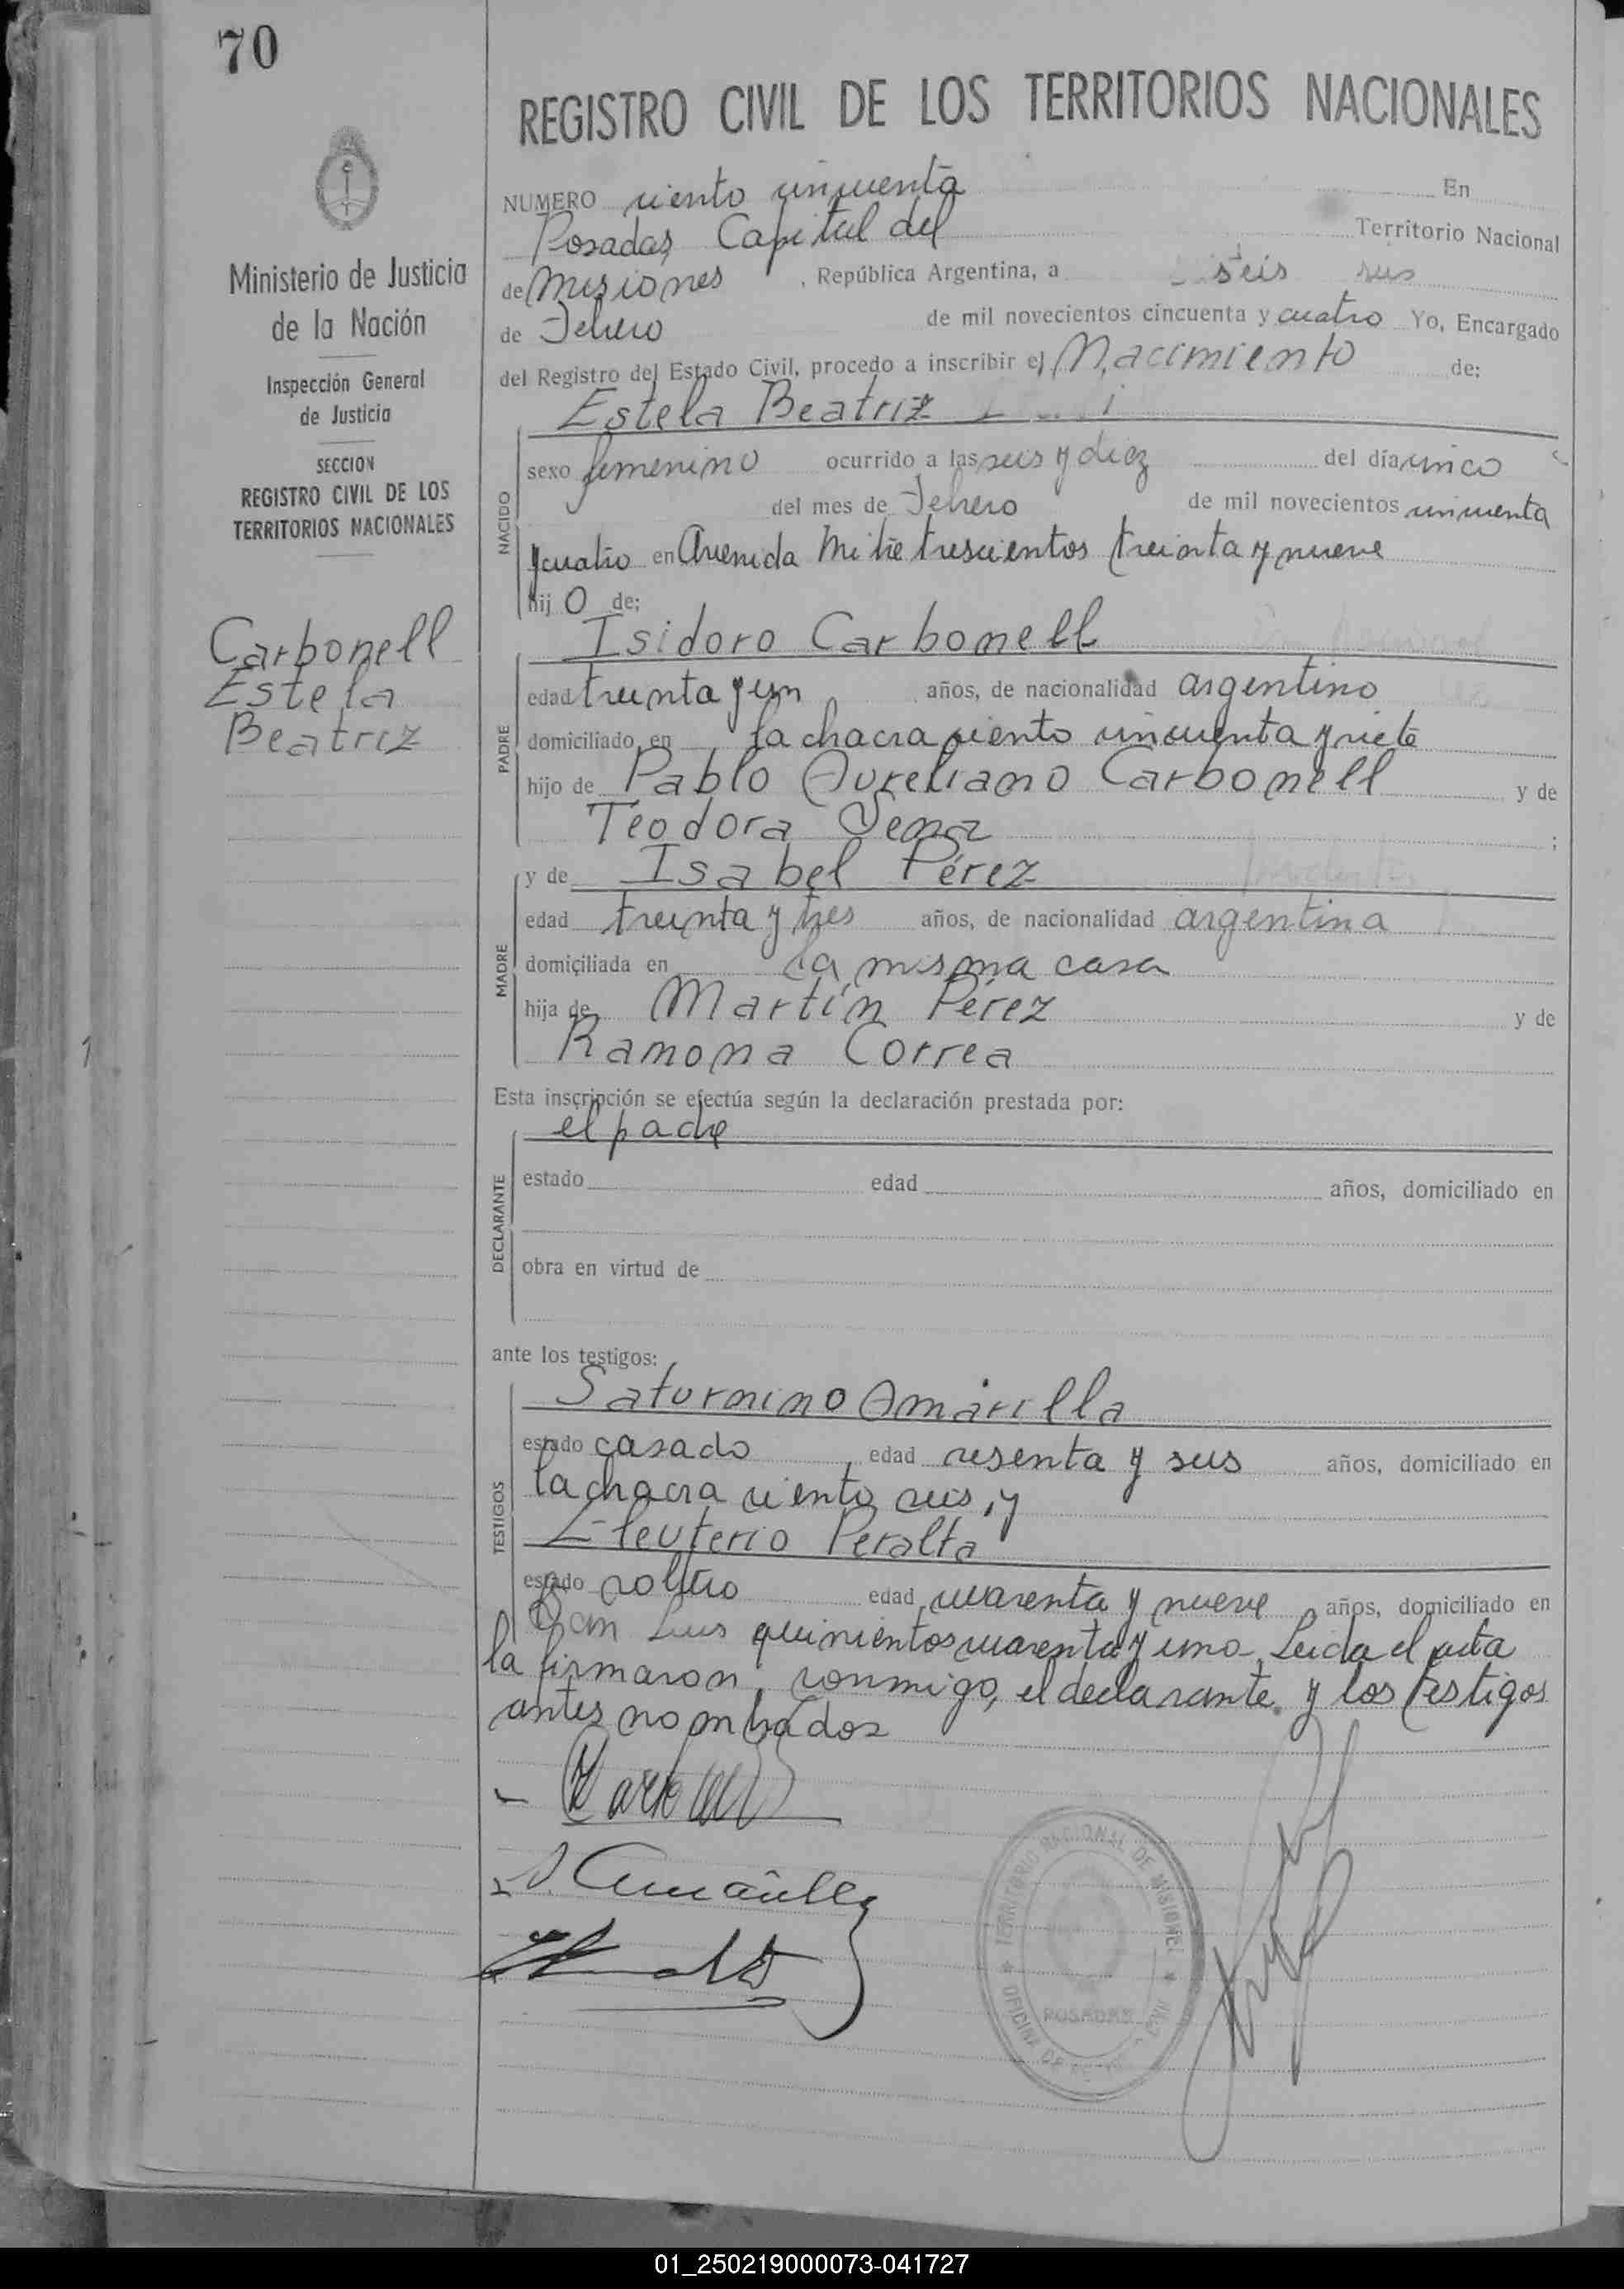 70
REGISTRO CIVIL DE LOS TERRITORIOS NACIONALES
Ministerio de Justicia
de la Nación
Inspección General
de Justicia
SECCION
REGISTRO CIVIL DE LOS
TERRITORIOS NACIONALES
Carbonell
Estela
Beatriz
NUMERO ciento cincuenta En
Posadas, Capital del Territorio Nacional
de Misiones, República Argentina, a seis
de Febrero de mil novecientos cincuenta y cuatro Yo, Encargado
del Registro del Estado Civil, procedo a inscribir el Nacimiento de:
Estela Beatriz
NACIDO
sexo femenino ocurrido a las seis y diez del día cinco
del mes de Febrero de mil novecientos cincuenta
y cuatro en Avenida Mitre trescientos treinta y nueve
hij o de:
Isidoro Carbonell
PADRE
edad treinta y un años, de nacionalidad argentino
domiciliado en la chacra ciento cincuenta y siete
hijo de Pablo Aureliano Carbonell y de
Teodora Sena ;
y de Isabel Pérez
MADRE
edad treinta y tres años, de nacionalidad argentina
domiciliada en la misma casa
hija de Martín Pérez y de
Ramona Correa
Esta inscripción se efectúa según la declaración prestada por:
el padre
DECLARANTE
estado edad años, domiciliado en
obra en virtud de
ante los testigos:
Saturnino Amarilla
TESTIGOS
estado casado edad sesenta y seis años, domiciliado en
la chacra ciento seis, y
Eleuterio Peralta
estado soltero edad cuarenta y nueve años, domiciliado en
San Luis quinientos cuarenta y uno. Leida el acta
la firmaron, conmigo, el declarante y los testigos
antes nombrados
S. Amarilla
TERRITORIO NACIONAL DE MISIONES
POSADAS
01_250219000073-041727